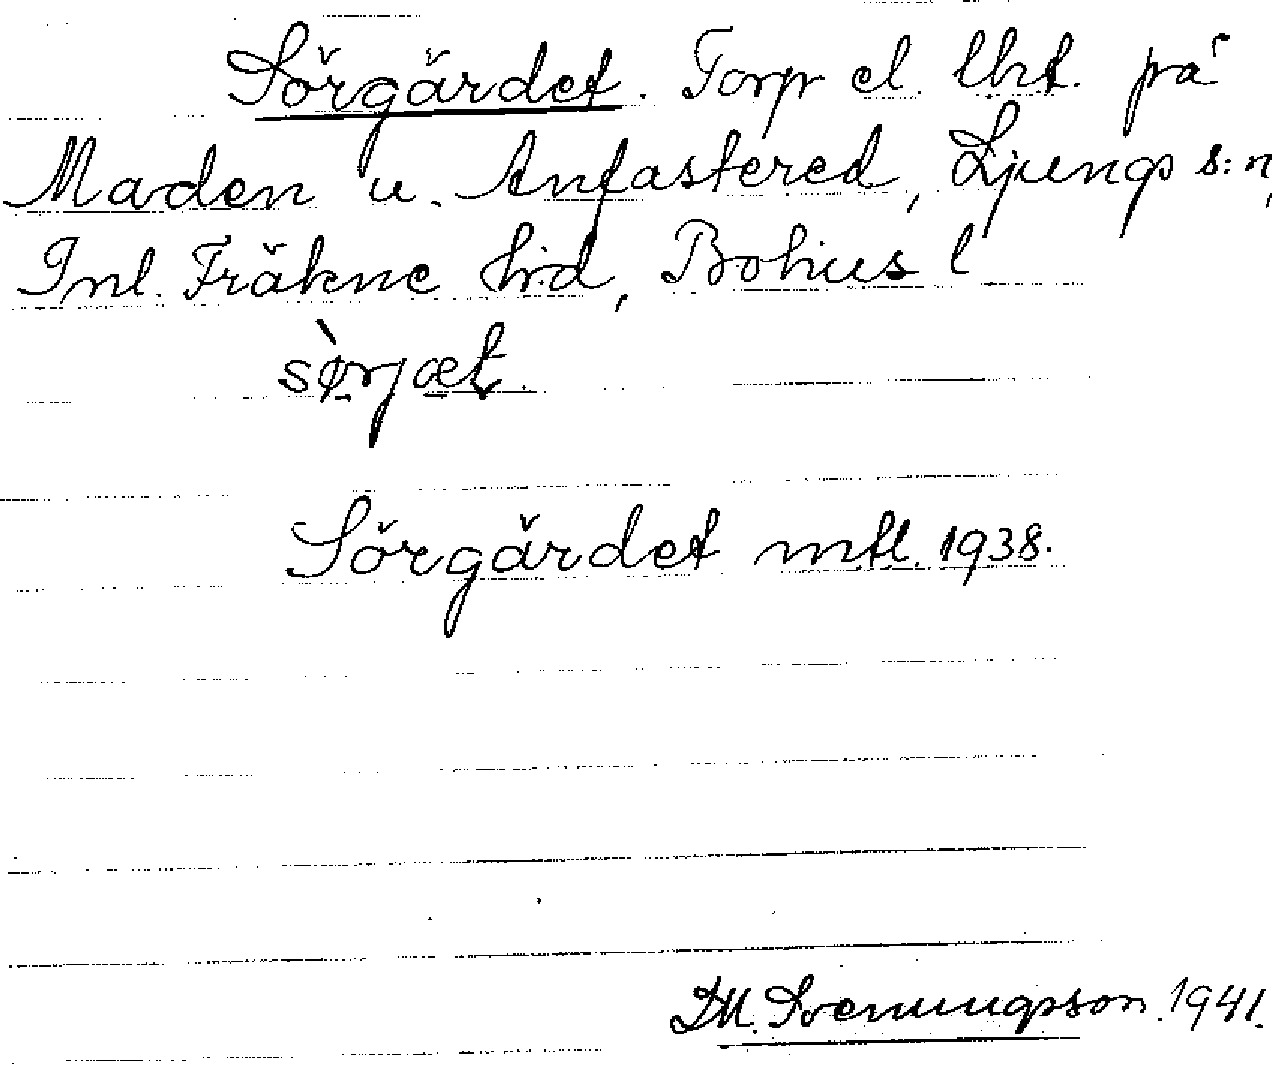 Sörgärdet. Torp el. lht. på
Maden u. Anfastered, Ljungs s:n,
Inl. Fräkne hd, Bohus l
sørjæt.
Sörgärdet mtl. 1938.
D.M. Svenungsson. 1941.